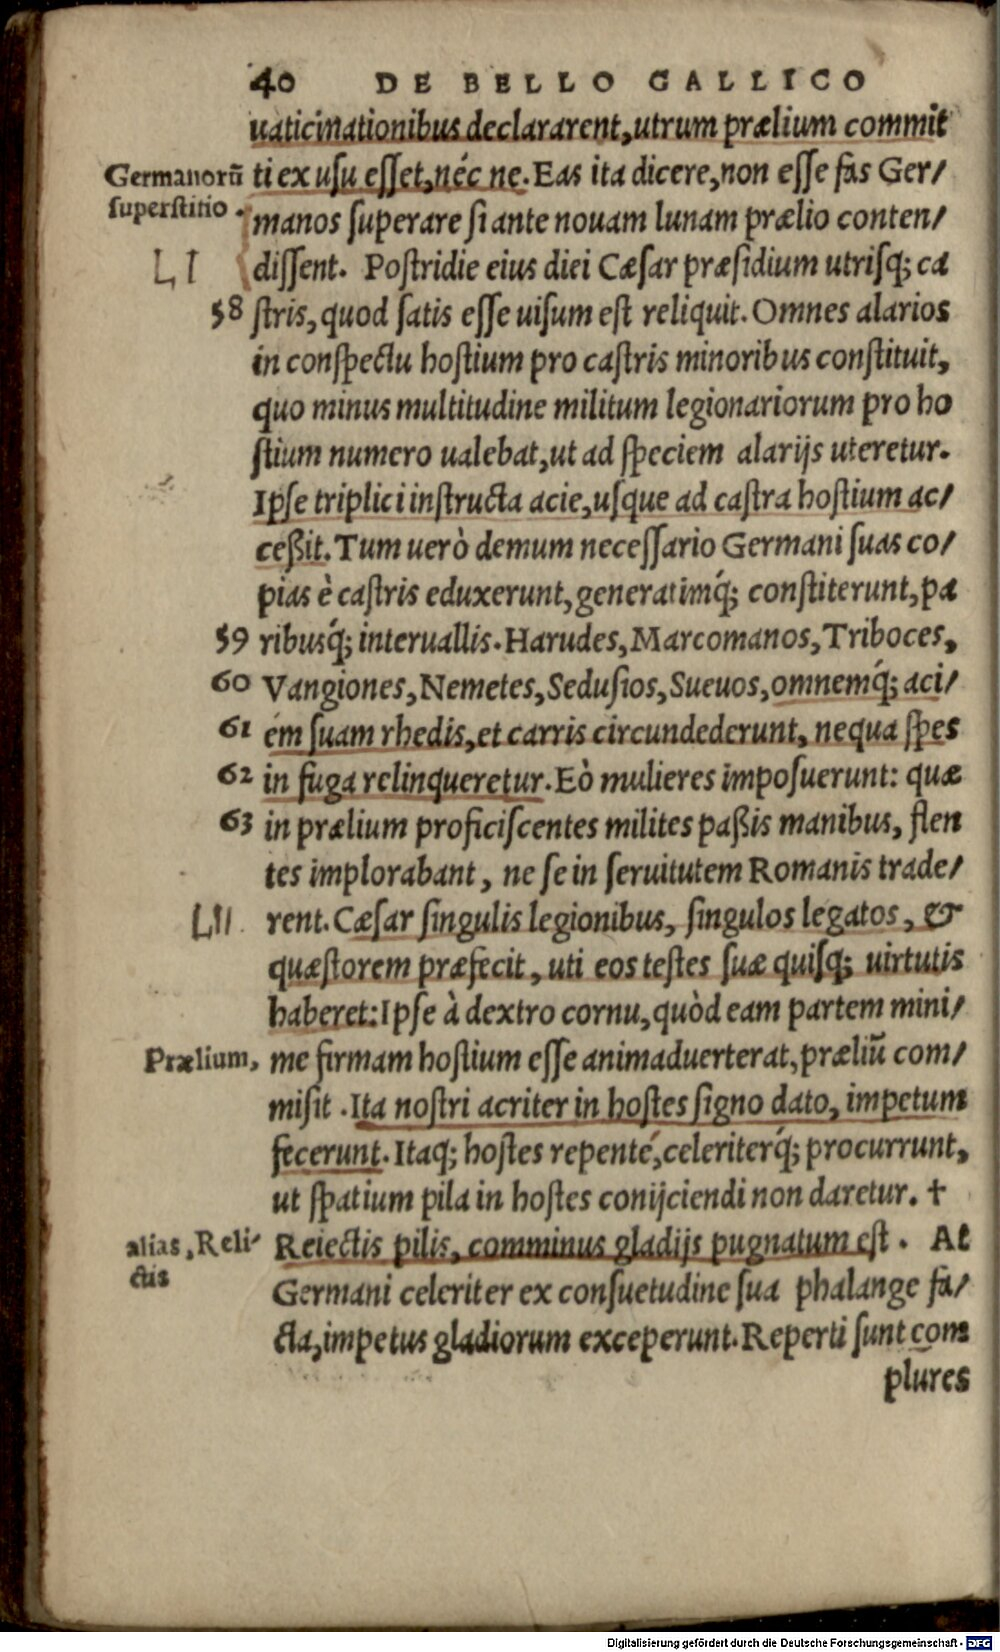 40 DE BELLO GALLICO
uaticinationibus declararent, utrum prælium commit
Germanorũ
superstitio.
ti ex usu esset, néc ne. Eas ita dicere, non esse fas Ger/
manos superare si ante nouam lunam prælio conten/
LI
dissent. Postridie eius diei Cæsar præsidium utrisq; ca
58 stris, quod satis esse uisum est reliquit. Omnes alarios
in conspectu hostium pro castris minoribus constituit,
quo minus multitudine militum legionariorum pro ho
stium numero ualebat, ut ad speciem alarijs uteretur.
Ipse triplici instructa acie, usque ad castra hostium ac/
ceßit. Tum uerò demum necessario Germani suas co/
pias è castris eduxerunt, generatimq́; constiterunt, pa
59 ribusq́; interuallis. Harudes, Marcomanos, Triboces,
60 Vangiones, Nemetes, Sedusios, Sueuos, omnemq́; aci/
61 em suam rhedis, et carris circundederunt, nequa spes
62 in fuga relinqueretur. Eò mulieres imposuerunt: quæ
63 in prælium proficiscentes milites paßis manibus, flen
tes implorabant, ne se in seruitutem Romanis trade/
LII. rent. Cæsar singulis legionibus, singulos legatos, &
quæstorem præfecit, uti eos testes suæ quisq; uirtutis
haberet: Ipse à dextro cornu, quòd eam partem mini/
Prælium, me firmam hostium esse animaduerterat, præliũ com/
misit. Ita nostri acriter in hostes signo dato, impetum
fecerunt. Itaq; hostes repenté, celeriterq́; procurrunt,
ut spatium pila in hostes conijciendi non daretur. †
alias, Reli/
ctis
Reiectis pilis, comminus gladijs pugnatum est. At
Germani celeriter ex consuetudine sua phalange fa/
cta, impetus gladiorum exceperunt. Reperti sunt com
plures
Digitalisierung gefördert durch die Deutsche Forschungsgemeinschaft - DFG